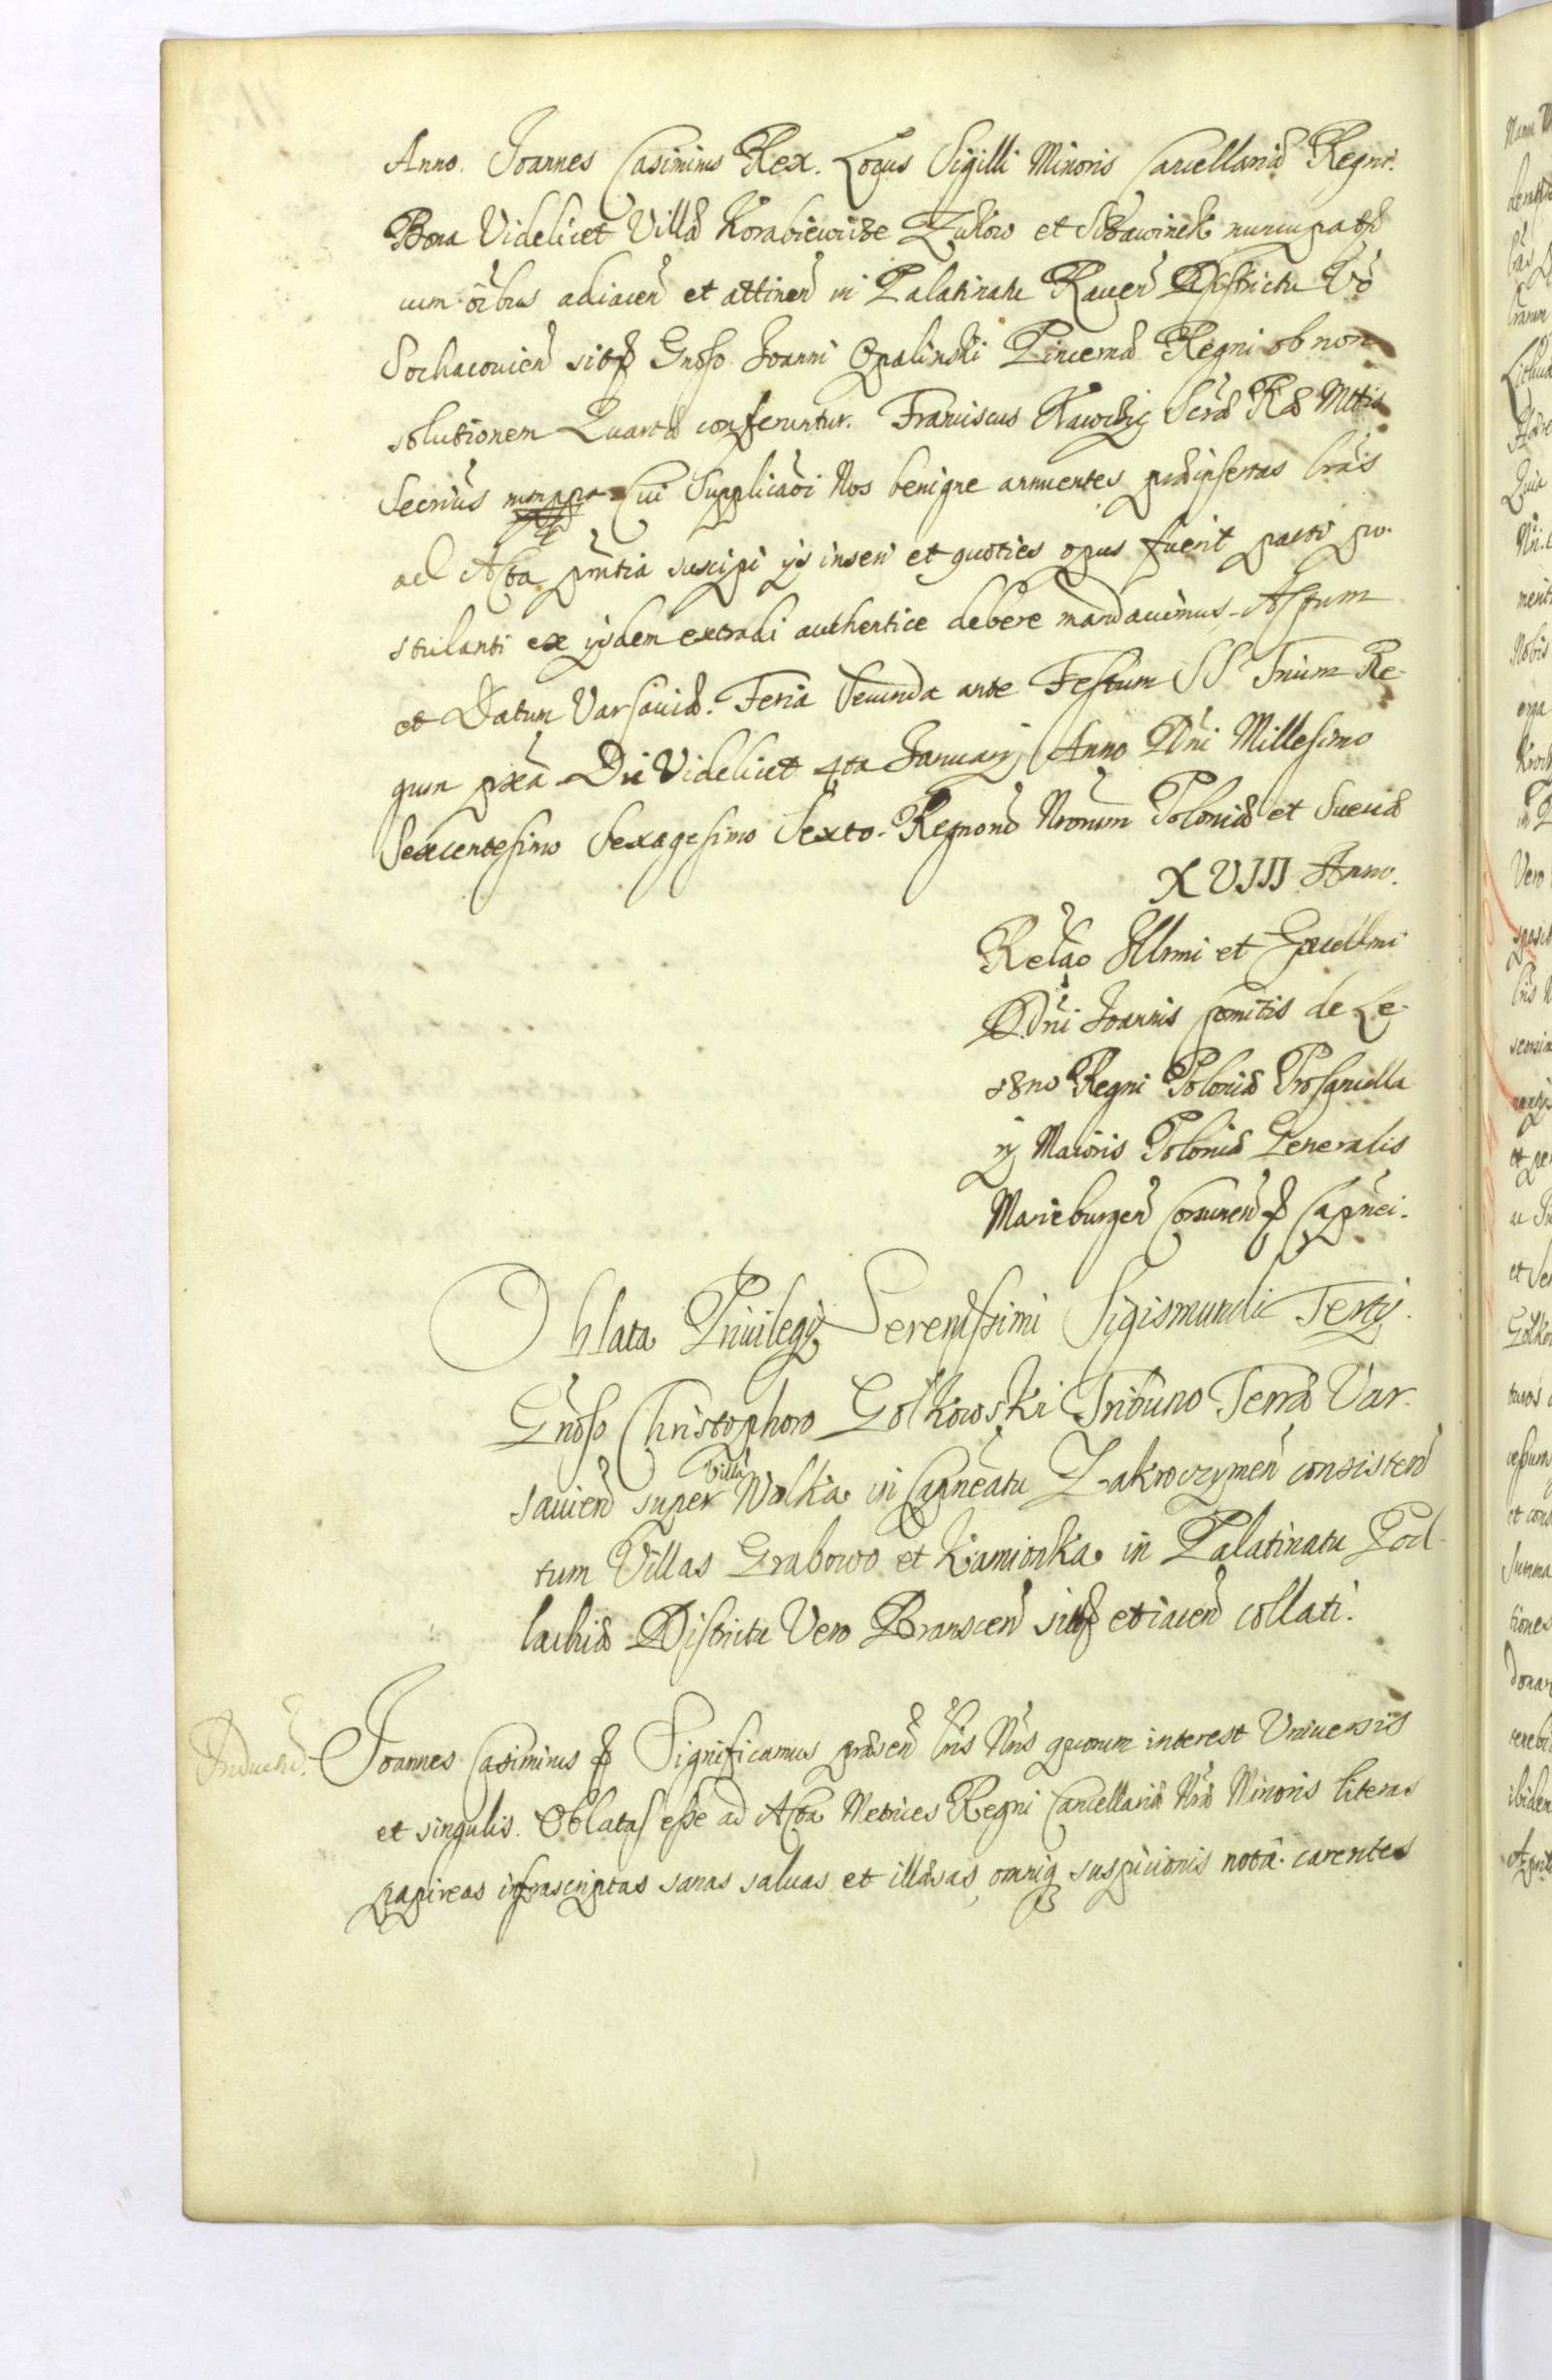 Anno. Joannes Casimirus Rex. Locus Sigilli Minoris Cancellariæ Regni.
Bona Videlicet Villæ Korabiewice Zukow et Skawinek nuncupat
cum oĩbus adiacen et attinen in Palatinatu Raven Districtu Vo
Sochacovien sit Gnoso Joanni Opalinski Pincernæ Regni ob non
solutionem Quartæ conferuntur. Franciscus Sacræ Ræ Mttis
Secrius manu ppa Cui Supplicaõi Nos benigne annuentes præinsertas lrãs
ad Acta pñtia suscipi ijs inseri et quoties opus fuerit parti po-
stulanti ex ijsdem extradi authentice debere mandavimus. Actum
et Datum Varsaviæ. Feria Secunda ante Festum SS Trium Re-
gum pxã Die Videlicet 4ta Januarij Anno Dni Millesimo
Sexcentesimo Sexagesimo Sexto. Regnorũ Nrorum Poloniæ et Sueciæ
XVIII Anno.
Relao Illrmi et Excellmi
D. Dni Joannis Comitis de Le-
szno Regni Poloniæ Procancella
rij Maioris Poloniæ Generalis
Marieburgen Corsunen Capnei.
Oblata Privilegij Serenissimi Sigismundi Tertij
Gnoso Christophoro Golkowski Tribuno Terræ Var-
savien super Villa Wolka in Capneatu Zakroczymen consisten
tum Villas Grabowo et Kamionka in Palatinatu Pod-
lachiæ Districtu Vero Branscen sit et iacen collati.
Joannes Casimirus Significamus præsen lris Nris quorum interest Universis
et singulis. Oblatas esse ad Acta Metrices Regni Cancellariæ Nræ Minoris literas
papireas infrascriptas sanas salvas et illæsas, omniq suspicionis notâ carentes